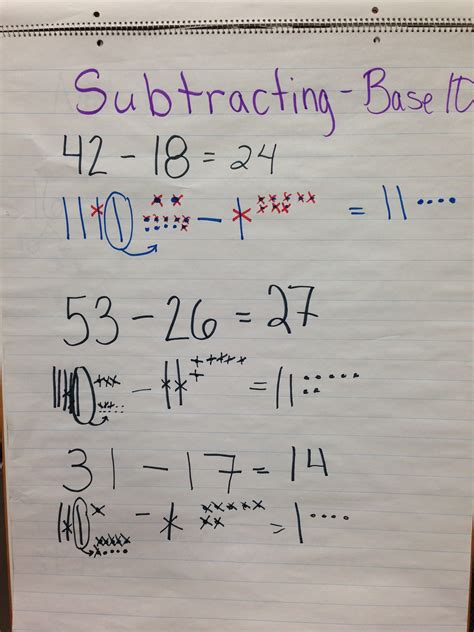 Subtracting - Base 10
42 - 18 = 24
- = 11 ....
53 - 26 = 27
- = 11
31 - 17 = 14
- = 1 ....